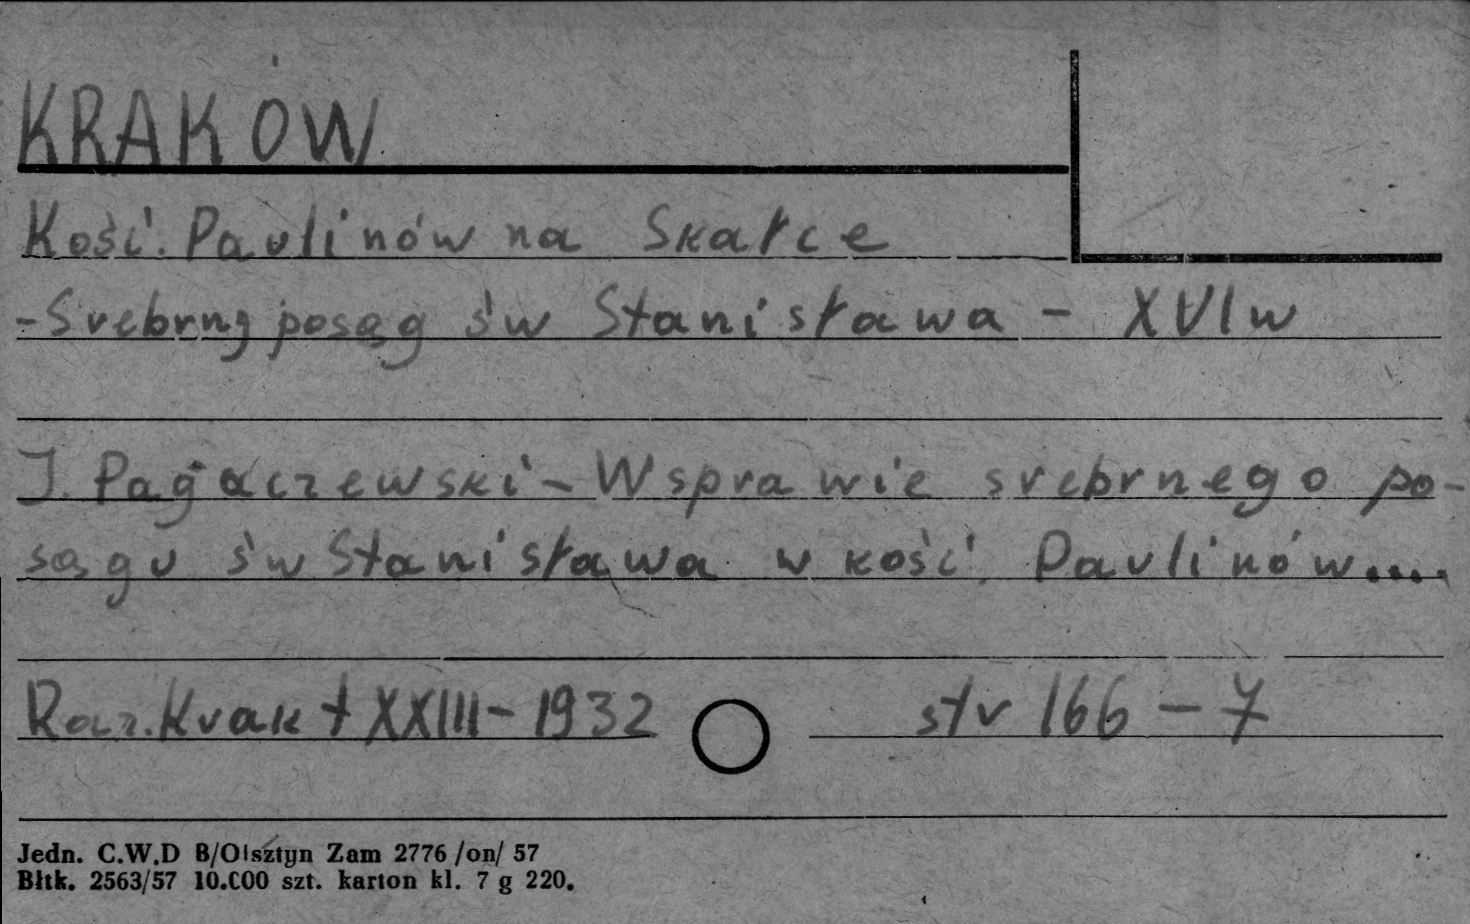 KRAKÓW
Kość. Paulinów na Skałce
-Srebrny posąg św Stanisława - XVI w
J. Pagaczewski - W sprawie srebrnego po-
sągu św Stanisława w kość. Paulinów....
Rocz. Krak t XXIII - 1932 str 166 - 7
Jedn. C.W.D B/Olsztyn Zam 2776 /on/ 57
Błtk. 2563/57 10.000 szt. karton kl. 7 g 220.